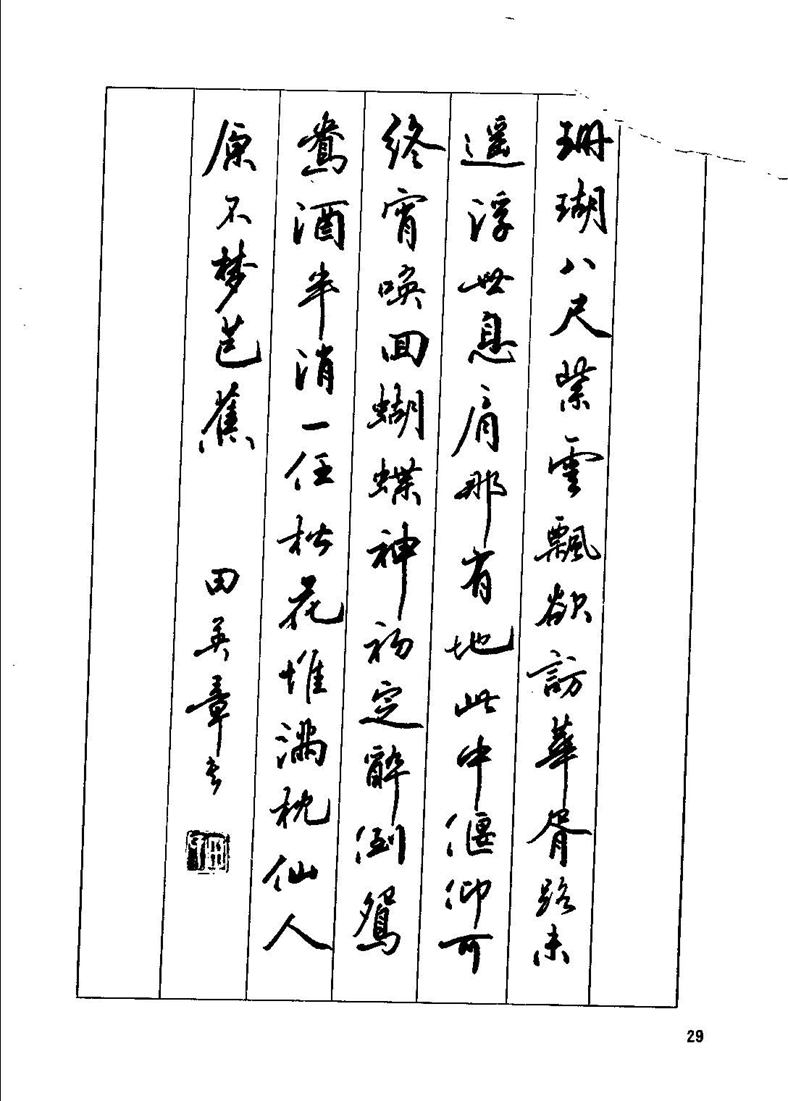 珊瑚八尺紫雲飄欲訪華胥路未
遥浮世息肩那有地此中偃仰可
终宵唤回蝴蝶神初定醉倒鴛
鴦酒半消一任松花堆满枕仙人
原不梦芭蕉
田英章书
29